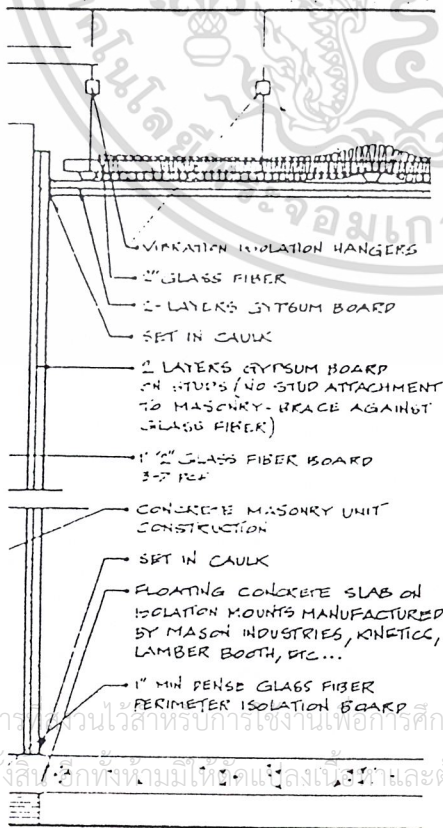 VIBRATION ISOLATION HANGERS
2" GLASS FIBER
2-LAYERS GYPSUM BOARD
SET IN CAULK
2 LAYERS GYPSUM BOARD
ON STUDS (NO STUD ATTACHMENT
TO MASONRY-BRACE AGAINST
GLASS FIBER)
GLASS FIBER BOARD
CONCRETE MASONRY UNIT
CONSTRUCTION
SET IN CAULK
FLOATING CONCRETE SLAB ON
ISOLATION MOUNTS MANUFACTURED
BY MASON INDUSTRIES, KINETICS,
LAMBER BOOTH, ETC...
1" MIN DENSE GLASS FIBER
PERIMETER ISOLATION BOARD
สำหรับการใช้งานเพื่อการศึก
อีกทั้งห้ามมิให้ดัดแปลงเนื้อหาและ